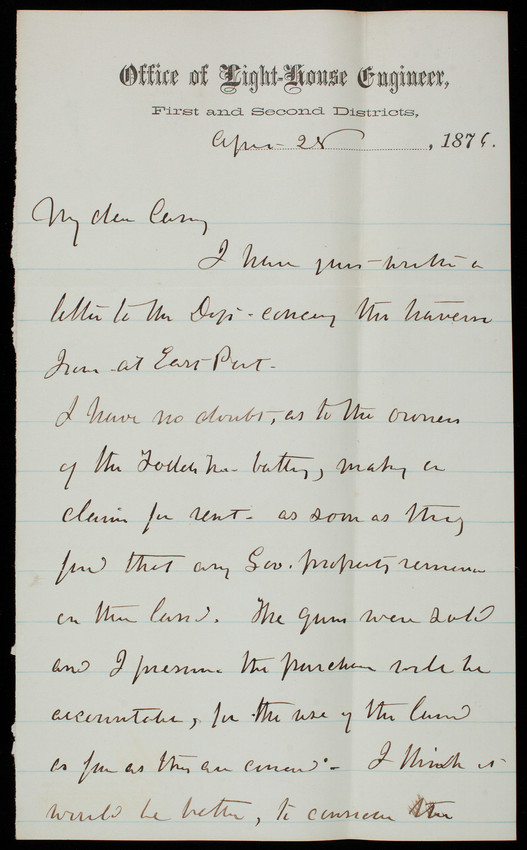 Office of Light-House Engineer,
First and Second Districts,
April 28, 1876.
My dear Casey
I have just written a
letter to the Dept. concerning the traverse
Iron at East Port.
I have no doubt, as to the owners
of the battery, making a
claim for rent as soon as they
find that any Gov. property remains
on their land. The guns were sold
and I presume the purchaser will be
accountable, for the use of the land
as far as they are concerned. I think it
would be better, to consider the